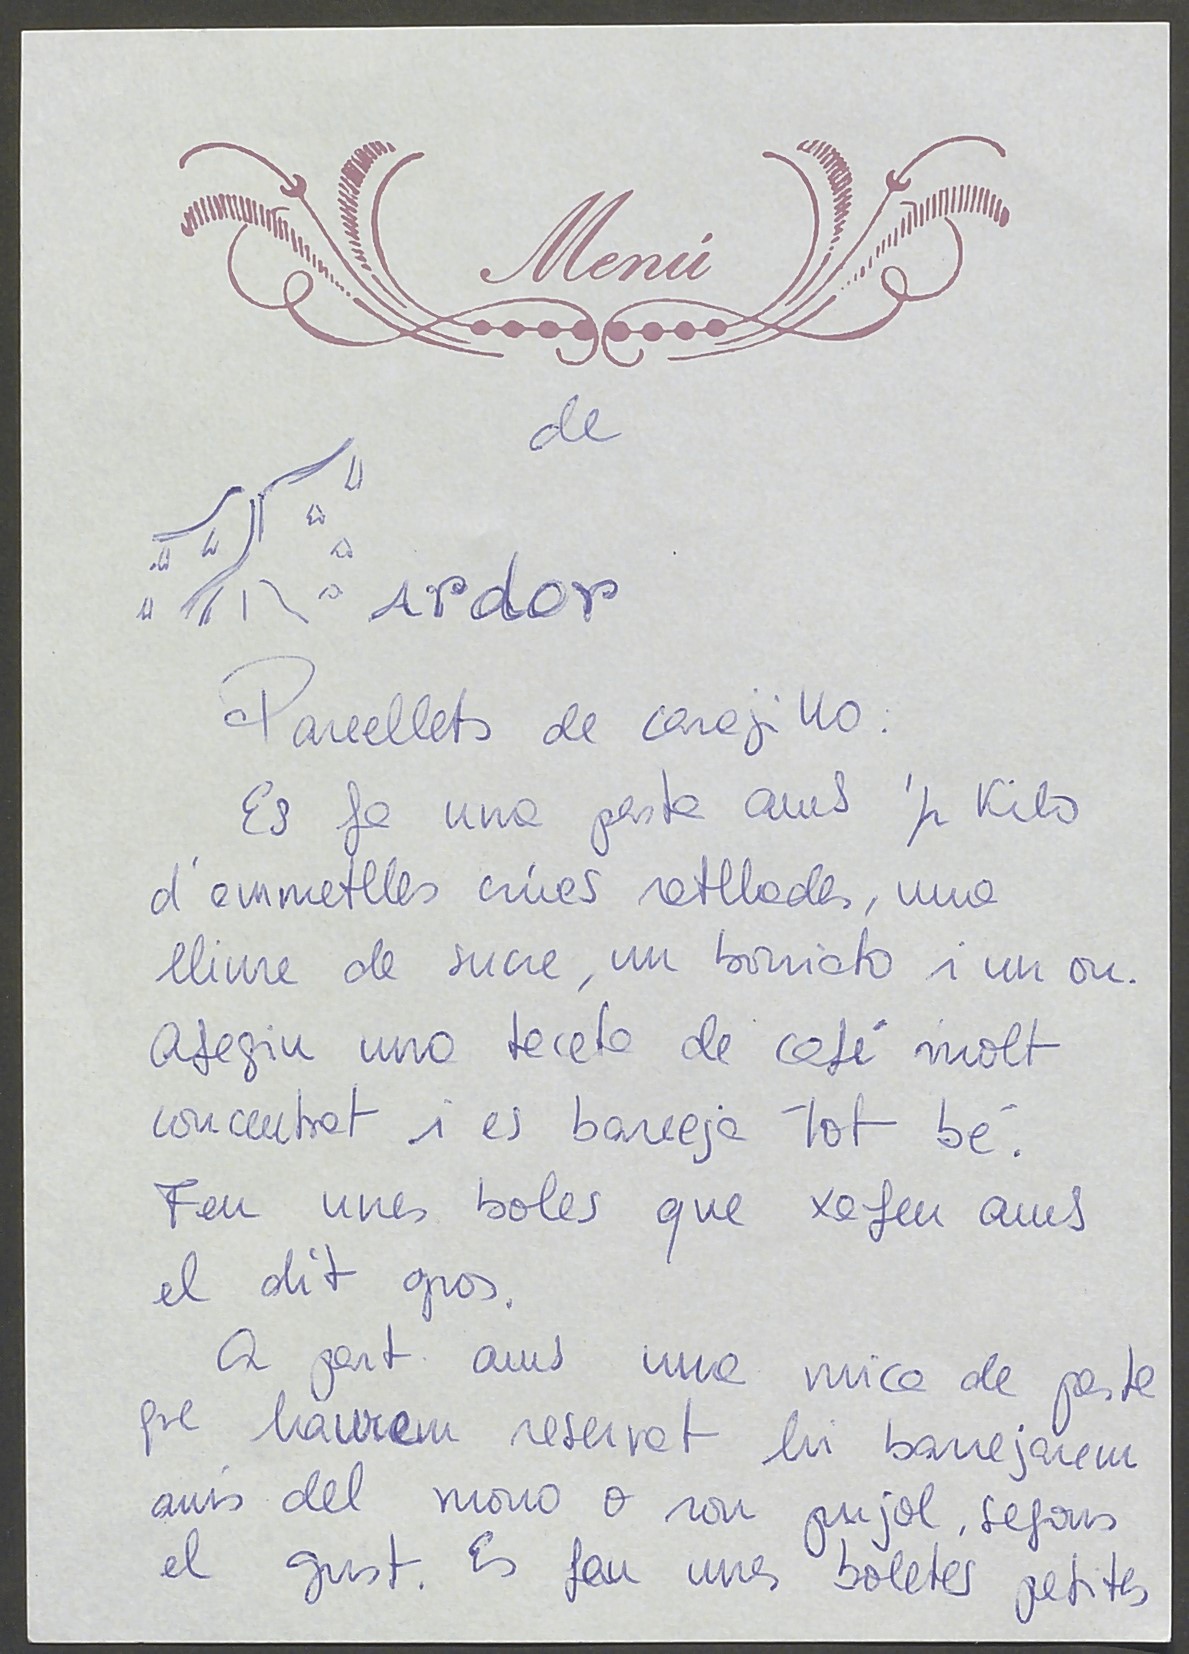 Menú
de
ardor
Panellets de carajillo:
Es fa una pasta amb 1/2 Kilo
d'ammetlles crúes ratllades, una
lliura de sucre, un boniato i un ou.
Afegiu una taceta de café molt
concentrat i es barreja tot bé.
Feu unes boles que xafeu amb
el dit gros.
A part amb una mica de pasta
que haurem reservat hi barrejarem
anís del mono o ron pujol, segons
el gust. Es fan unes boletes petites